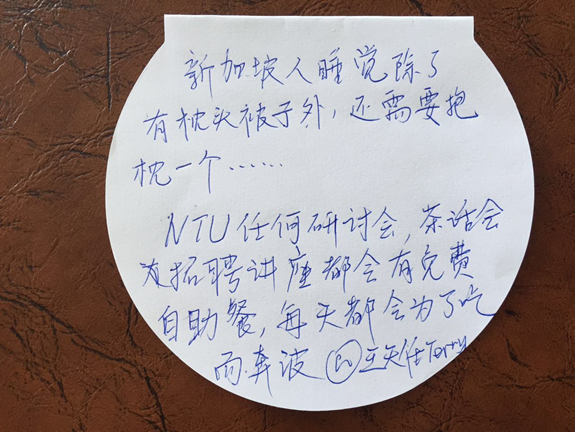 新加坡人睡觉除了
有枕头被子外，还需要抱
枕一个……
NTU任何研讨会，茶话会
及招聘讲座都会有免费
自助餐，每天都会为了吃
而奔波 王天任Terry